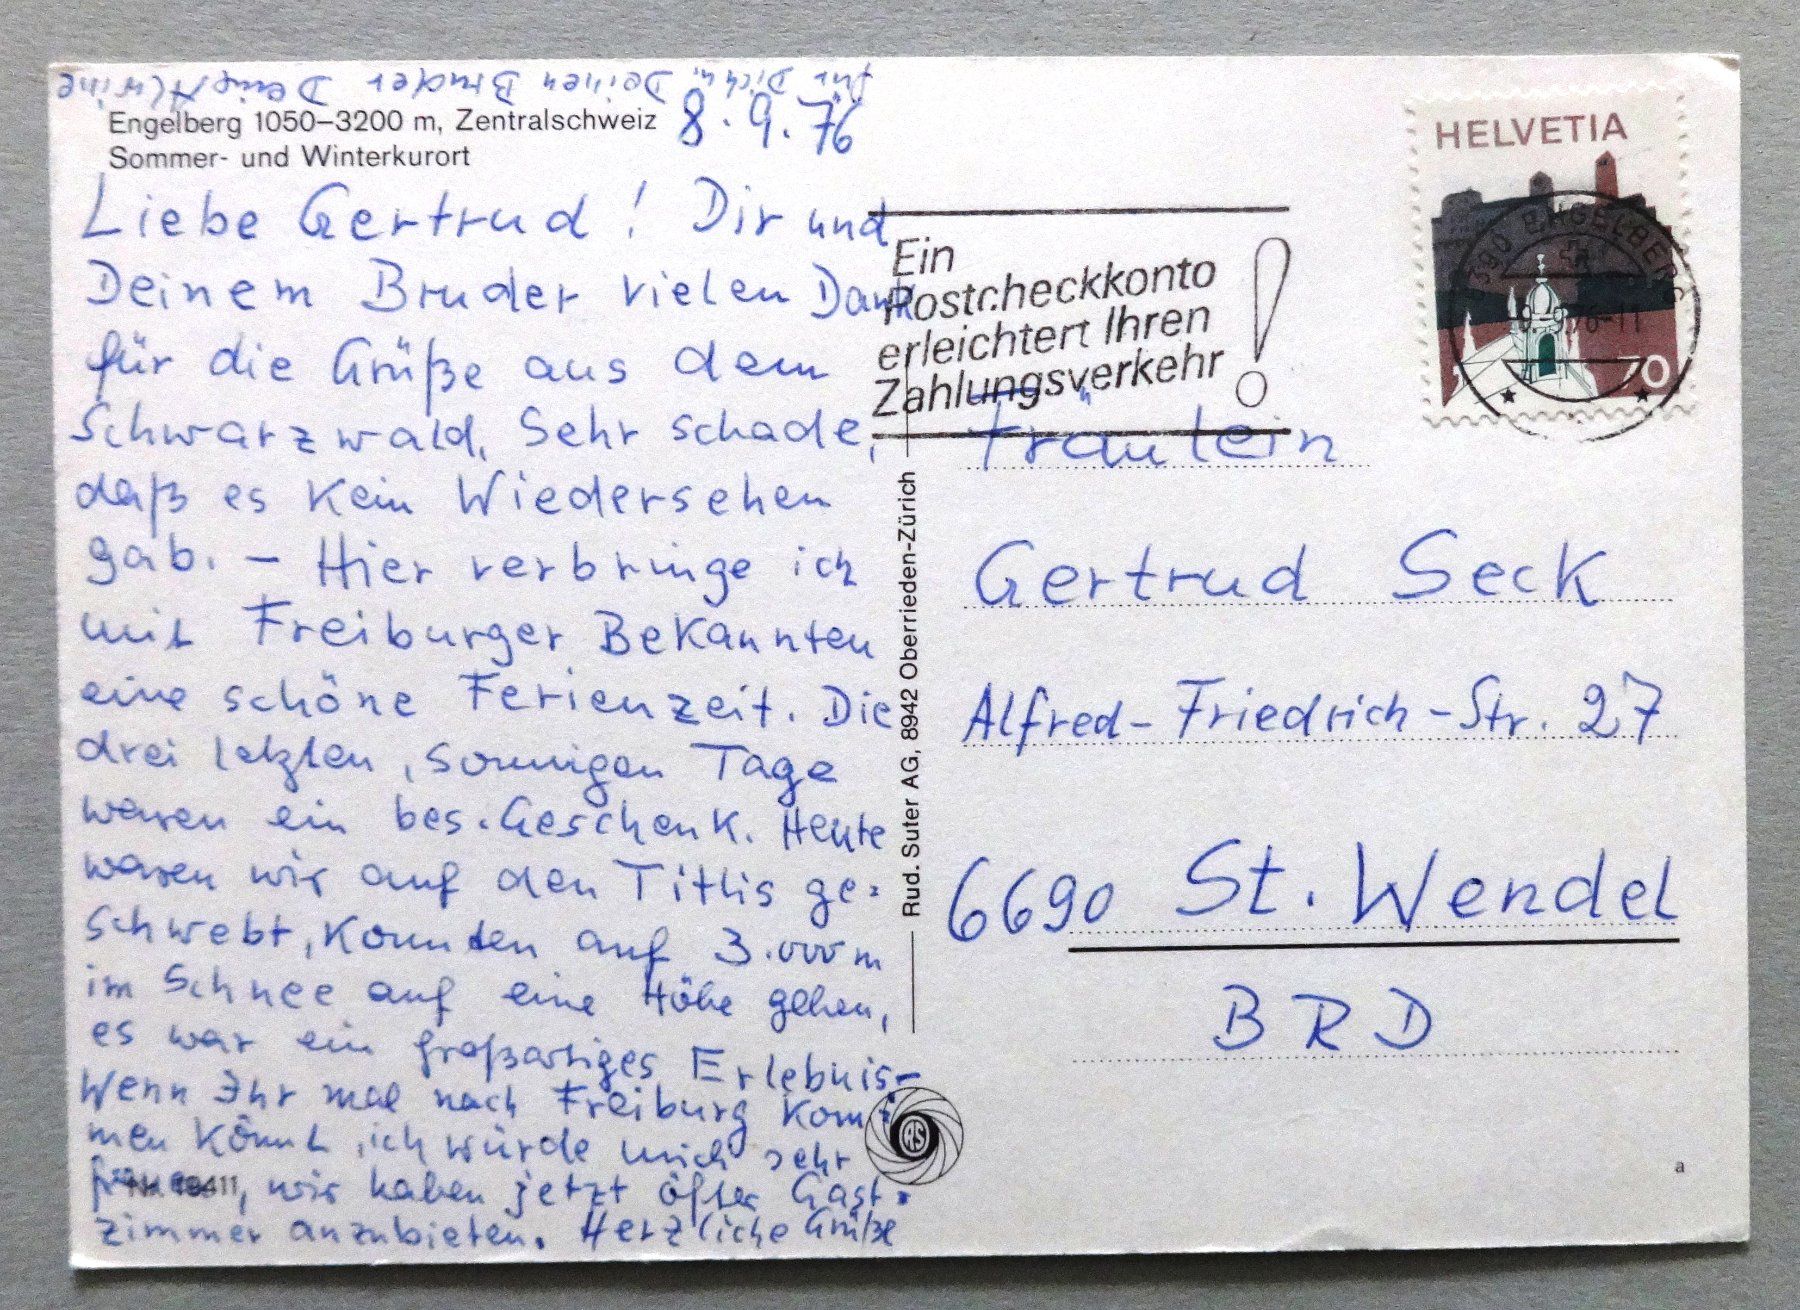 Engelberg 1050–3200 m, Zentralschweiz
Sommer- und Winterkurort
8.9.76
Liebe Gertrud! Dir und
Deinem Bruder vielen Dank
für die Grüße aus dem
Schwarzwald. Sehr schade,
daß es kein Wiedersehen
gab. – Hier verbringe ich
mit Freiburger Bekannten
eine schöne Ferienzeit. Die
drei letzten, sonnigen Tage
waren ein bes. Geschenk. Heute
waren wir auf den Titlis ge=
schwebt, konnten auf 3.000 m
im Schnee auf eine Höhe gehen,
es war ein großartiges Erlebnis–
Wenn Ihr mal nach Freiburg kom=
men könnt, ich würde mich sehr
freuen, wir haben jetzt öfter Gast=
zimmer anzubieten. Herzliche Grüße
für Dich u. Deinen Bruder Deine Alwine
Nr. 19411
Rud. Suter AG, 8942 Oberrieden-Zürich
RS
Ein
Postcheckkonto
erleichtert Ihren
Zahlungsverkehr !
HELVETIA
70
6390 ENGELBERG
Fräulein
Gertrud Seck
Alfred-Friedrich-Str. 27
6690 St. Wendel
BRD
a